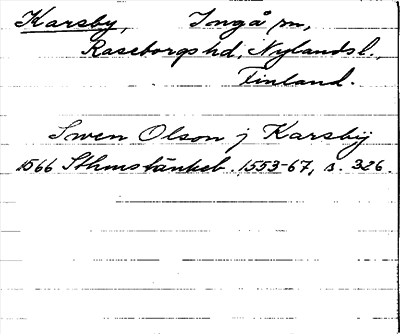 Karsby, Ingå sn,
Raseborgs hd, Nylands l.,
Finland.
Swen Olson j Karsbÿ
1566 Sthmstänkeb. 1553-67, s. 326.